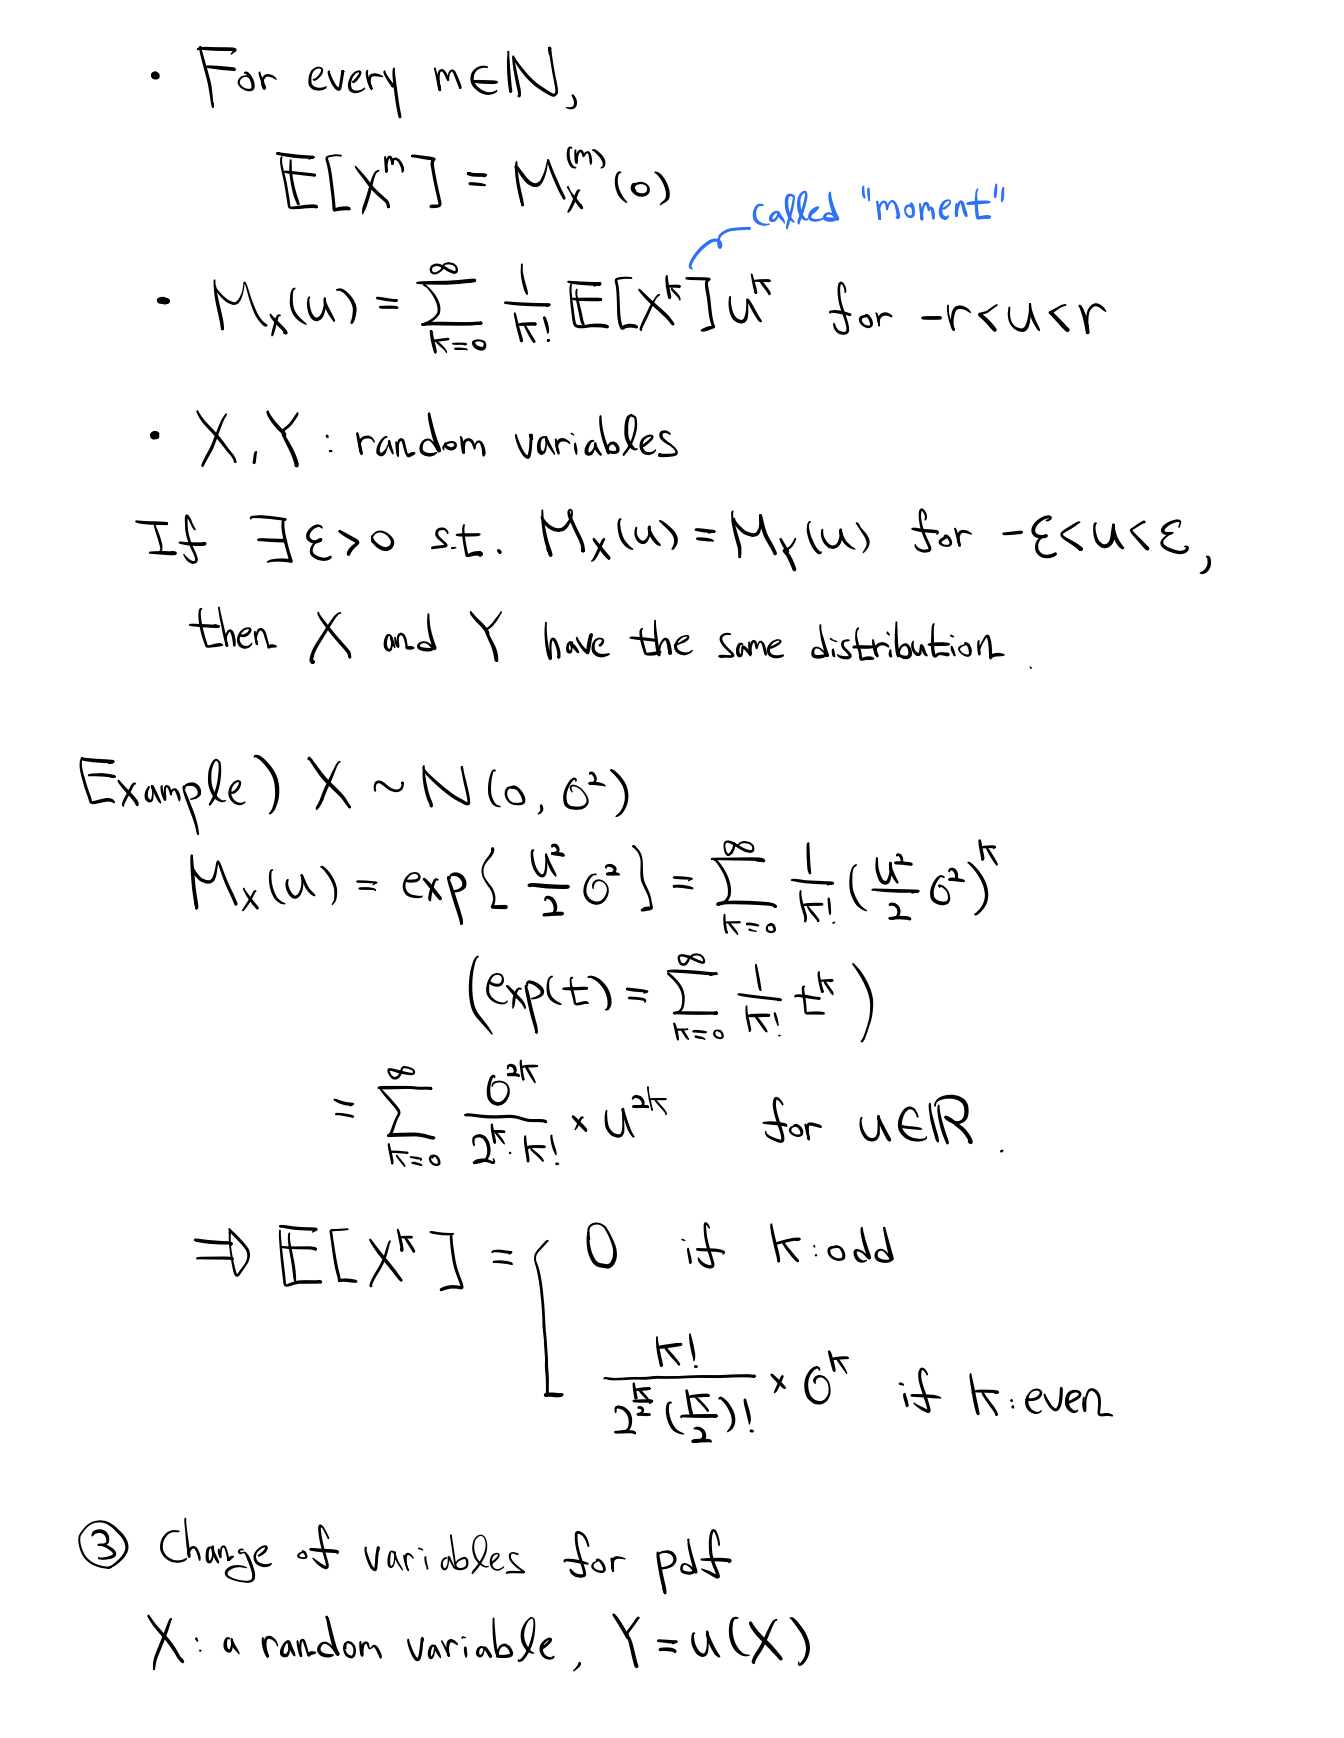 • For every m∈ℕ,
𝔼[X^m] = M_X^(m)(0)
called "moment"
• M_X(u) = ∑_{k=0}^{∞} 1/k! 𝔼[X^k] u^k for -r<u<r
• X, Y : random variables
If ∃ε>0 s.t. M_X(u) = M_Y(u) for -ε<u<ε,
then X and Y have the same distribution.
Example) X ~ N(0, σ²)
M_X(u) = exp{ u²/2 σ² } = ∑_{k=0}^{∞} 1/k! (u²/2 σ²)^k
(exp(t) = ∑_{k=0}^{∞} 1/k! t^k)
= ∑_{k=0}^{∞} σ^{2k}/(2^k · k!) × u^{2k} for u∈ℝ.
⇒ 𝔼[X^k] = { 0 if k : odd
k!/(2^{k/2} (k/2)!) × σ^k if k : even
③ Change of variables for pdf
X : a random variable, Y = u(X)